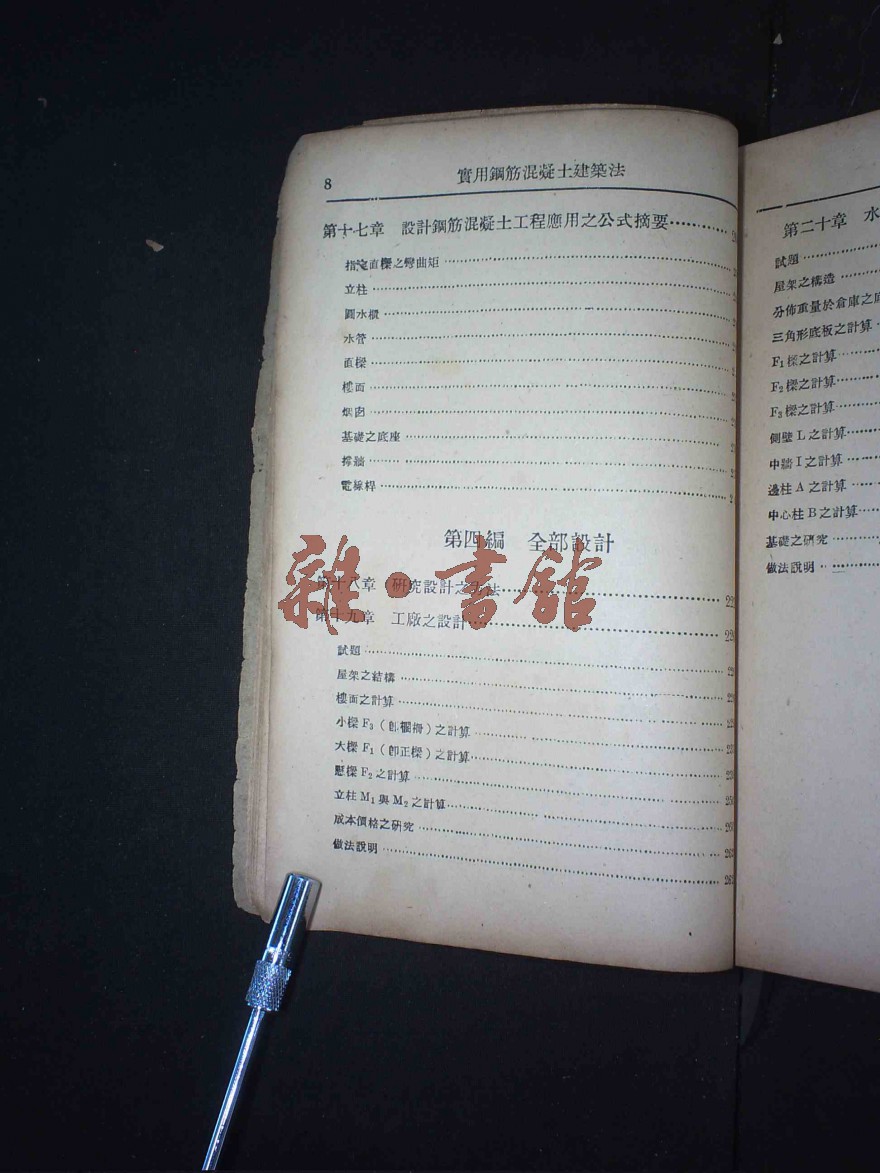 8
實用鋼筋混凝土建築法
第十七章 設計鋼筋混凝土工程應用之公式摘要
指定直樑之彎曲矩
立柱
圓水櫃
水管
直樑
樓面
烟囱
基礎之底座
撐牆
電線桿
第四編 全部設計
第十八章 研究設計之方法
第十九章 工廠之設計
試題
屋架之結構
樓面之計算
小樑 F₃（卽欄擱）之計算
大樑 F₁（卽正樑）之計算
懸樑 F₂ 之計算
立柱 M₁ 與 M₂ 之計算
成本價格之研究
做法說明
第二十章 水
試題
屋架之構造
分佈重量於倉庫之底
三角形底板之計算
F₁ 樑之計算
F₂ 樑之計算
F₃ 樑之計算
側壁 L 之計算
中牆 I 之計算
邊柱 A 之計算
中心柱 B 之計算
基礎之研究
做法說明
雜·書館